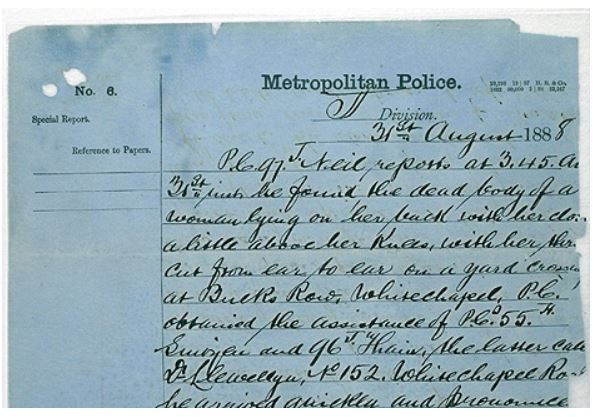 No. 6.
Special Report.
Reference to Papers.
Metropolitan Police.
J Division.
31st August 1888
P.C. 97J Neil, reports at 3.45. a
31st inst. he found the dead body of a
woman lying on her back with her clo
a little above her knees, with her thr
cut from ear to ear on a yard cross
at Bucks Row, Whitechapel, P.C.
obtained the assistance of P.C.s 55.H.
and 96J Thain, the latter call
Dr. Llewellyn, No 152. Whitechapel Ro
he arrived quickly and pronounce